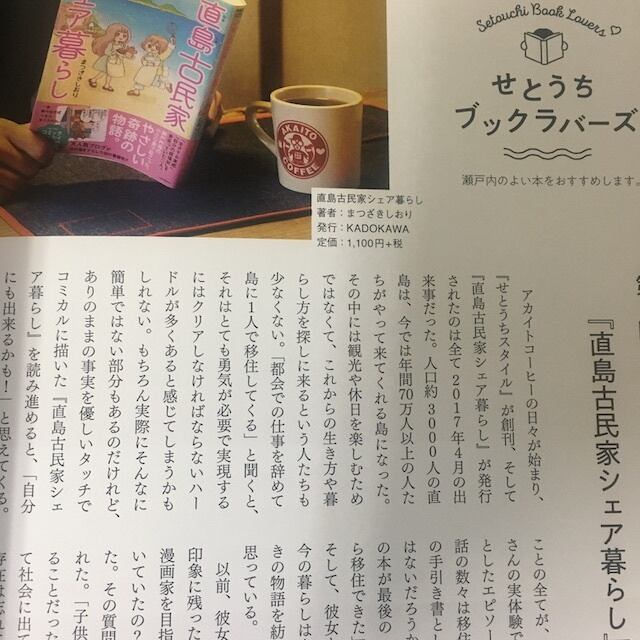 Setouchi Book Lovers
せとうち
ブックラバーズ
瀬戸内のよい本をおすすめします。
直島古民家
シェア暮らし
まつざきしおり
やさしい
奇跡の
物語。
AKAITO
COFFEE
直島古民家シェア暮らし
著者：まつざきしおり
発行：KADOKAWA
定価：1,100円+税
『直島古民家シェア暮らし』
アカイトコーヒーの日々が始まり、
『せとうちスタイル』が創刊、そして
『直島古民家シェア暮らし』が発行
されたのは全て2017年4月の出
来事だった。人口約3000人の直
島は、今では年間70万人以上の人た
ちがやって来てくれる島になった。
その中には観光や休日を楽しむため
ではなくて、これからの生き方や暮
らし方を探しに来るという人たちも
少なくない。「都会での仕事を辞めて
島に1人で移住してくる」と聞くと、
それはとても勇気が必要で実現する
にはクリアしなければならないハー
ドルが多くあると感じてしまうかも
しれない。もちろん実際にそんなに
簡単ではない部分もあるのだけれど、
ありのままの事実を優しいタッチで
コミカルに描いた『直島古民家シェ
ア暮らし』を読み進めると、「自分
にも出来るかも！」と思えてくる。
ことの全てが、
さんの実体験で
としたエピソー
話の数々は移住
の手引き書とし
はないだろうか
の本が最後の
ら移住できた
そして、彼女
今の暮らしは
きの物語を紡
思っている。
以前、彼女
印象に残った
漫画家を目指
いていたの？
た。その質問
れた。「子供
ることだった
て社会に出て